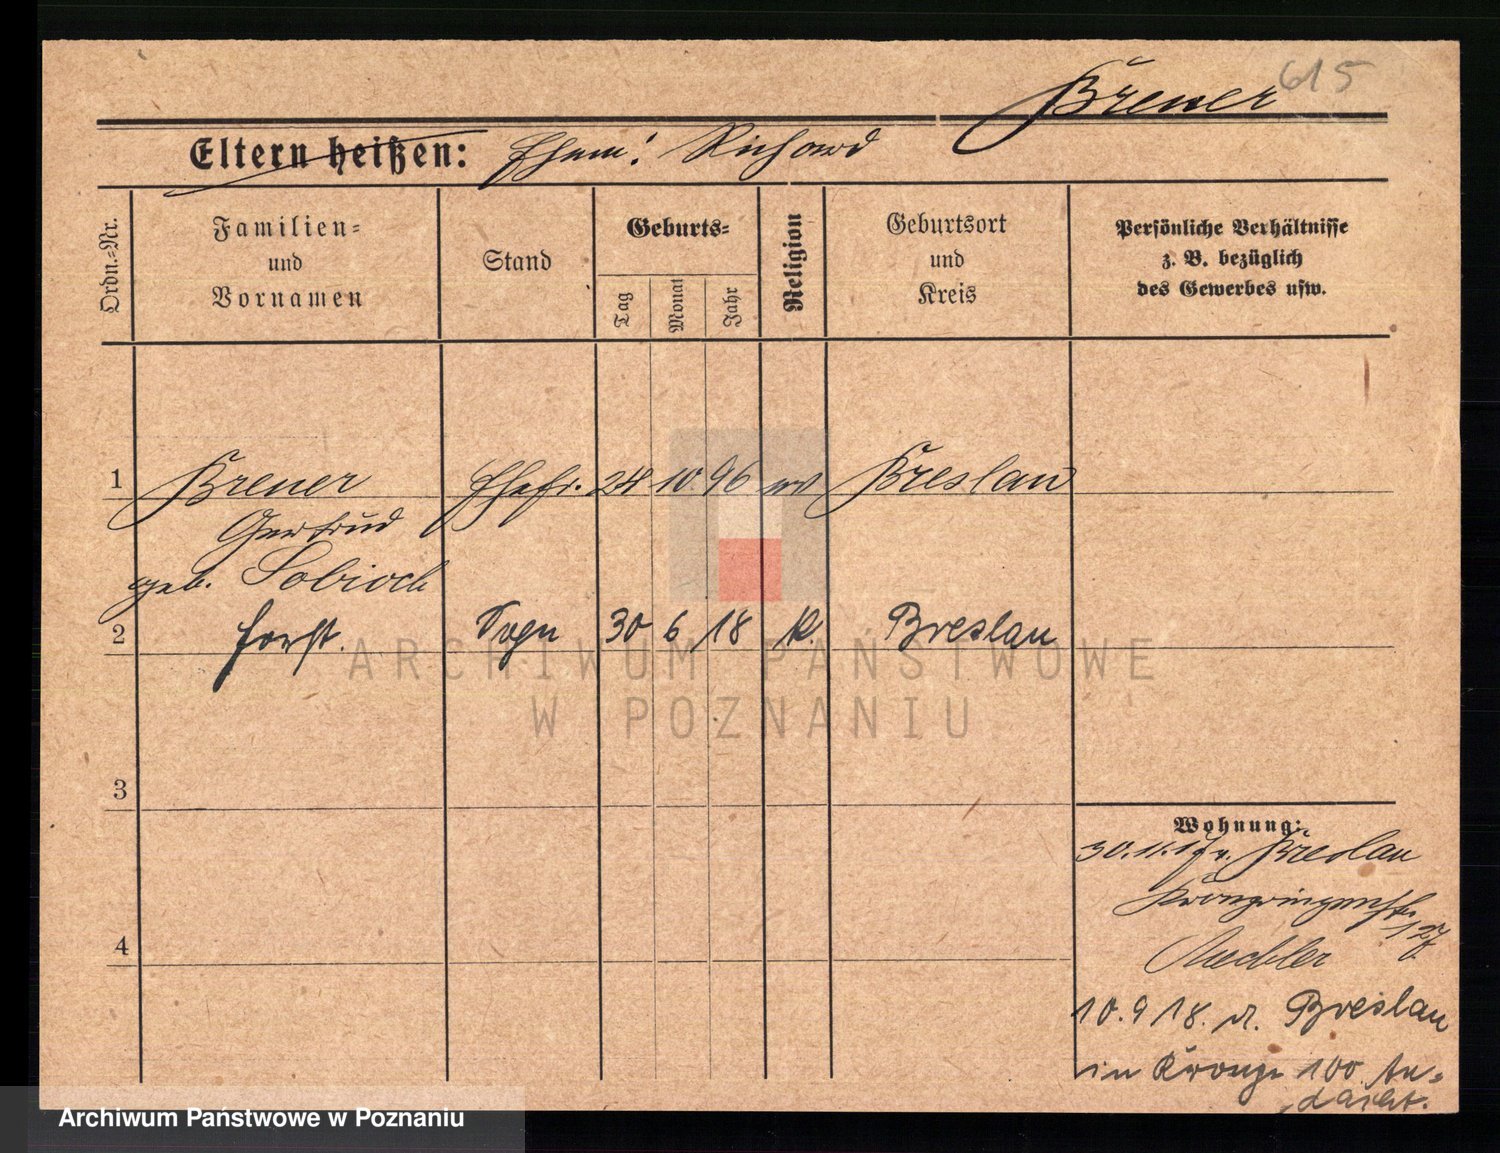 615
Brener
Eltern heißen: Ehem: Richard
Ordn.-Nr.
Familien-
und
Vornamen
Stand
Geburts-
Tag
Monat
Jahr
Religion
Geburtsort
und
Kreis
Persönliche Verhältnisse
z. B. bezüglich
des Gewerbes usw.
1 Brener Ehefr. 24 10 96 ev Breslau
Gertrud
geb. Sobioch
2 Horst. Sohn 30 6 18 k. Breslau
3
4
Wohnung:
30.11.17 v. Breslau
Kronprinzenstr
127
10.9 18. n. Breslau
in Kronpr 100
ARCHIWUM PAŃSTWOWE
W POZNANIU
Archiwum Państwowe w Poznaniu